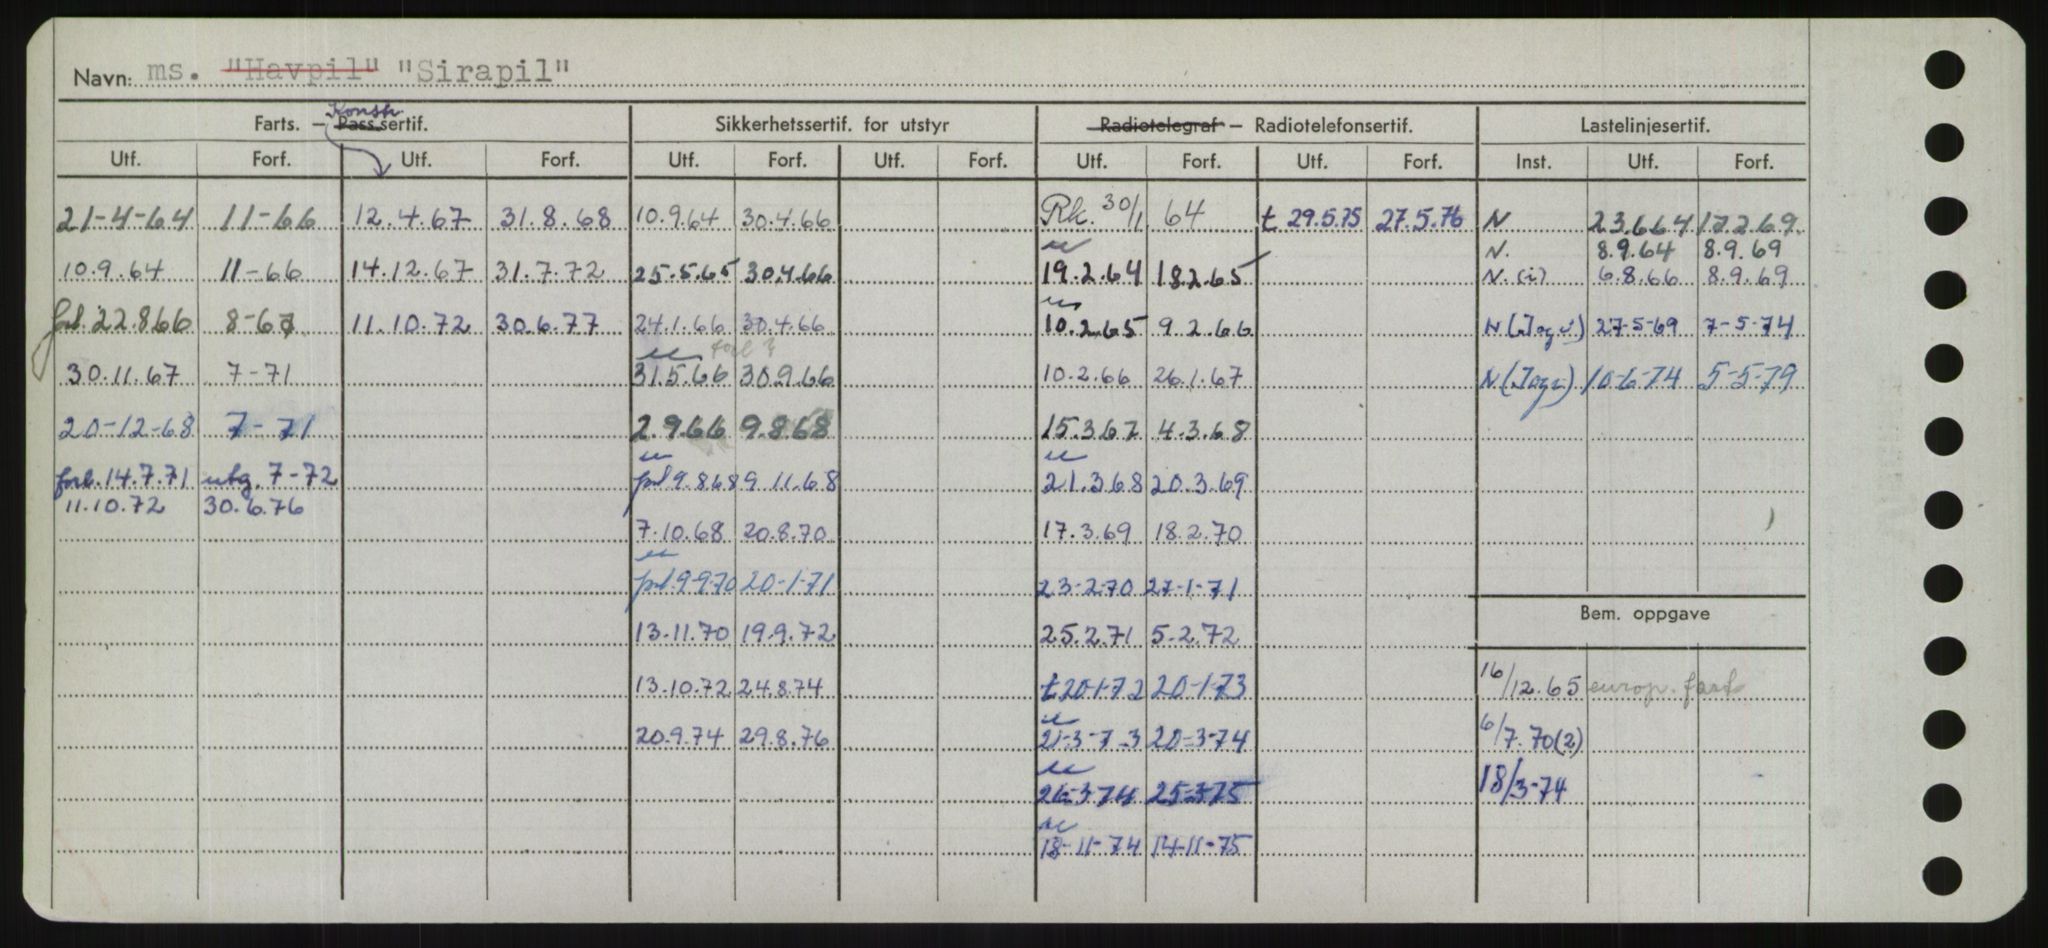 Navn: ms. "Havpil" "Sirapil"
Konstr.
Farts. – Pass.sertif. Sikkerhetssertif. for utstyr Radiotelegraf – Radiotelefonsertif. Lastelinjesertif.
Utf. Forf. Utf. Forf. Utf. Forf. Utf. Forf. Utf. Forf. Utf. Forf. Inst. Utf. Forf.
21-4-64 11-66 12.4.67 31.8.68 10.9.64 30.4.66 Rk. 30/1 64 t 29.5.75 27.5.76 N 23.6.64 17.2.69.
N. 8.9.64 8.9.69
10.9.64 11-66 14.12.67 31.7.72 25.5.65 30.4.66 19.2.64 18.2.65 N.(i) 6.8.66 8.9.69
forl. 22.8.66 8-67 11.10.72 30.6.77 24.1.66 30.4.66 10.2.65 9.2.66 27-5-69 7-5-74
30.11.67 7-71 31.5.66 30.9.66 10.2.66 26.1.67 10-6-74 5-5-79
20-12-68 7-71 2.9.66 9.8.68 15.3.67 4.3.68
forl. 14.7.71 utg. 7-72 forl 9.8.68 9.11.68 21.3.68 20.3.69
11.10.72 30.6.76
7.10.68 20.8.70 17.3.69 18.2.70
forl. 9-9-70 20-1-71 23-2-70 27-1-71
Bem. oppgave
13.11.70 19.9.72 25.2.71 5-2.72
13.10.72 24.8.74 t 20-1-72 20-1-73 16/12.65 europ. fart
20.9.74 29.8.76 21-3-73 20-3-74 6/7.70(2)
26-3-74 25-3-75 18/3-74
18-11-74 14-11-75